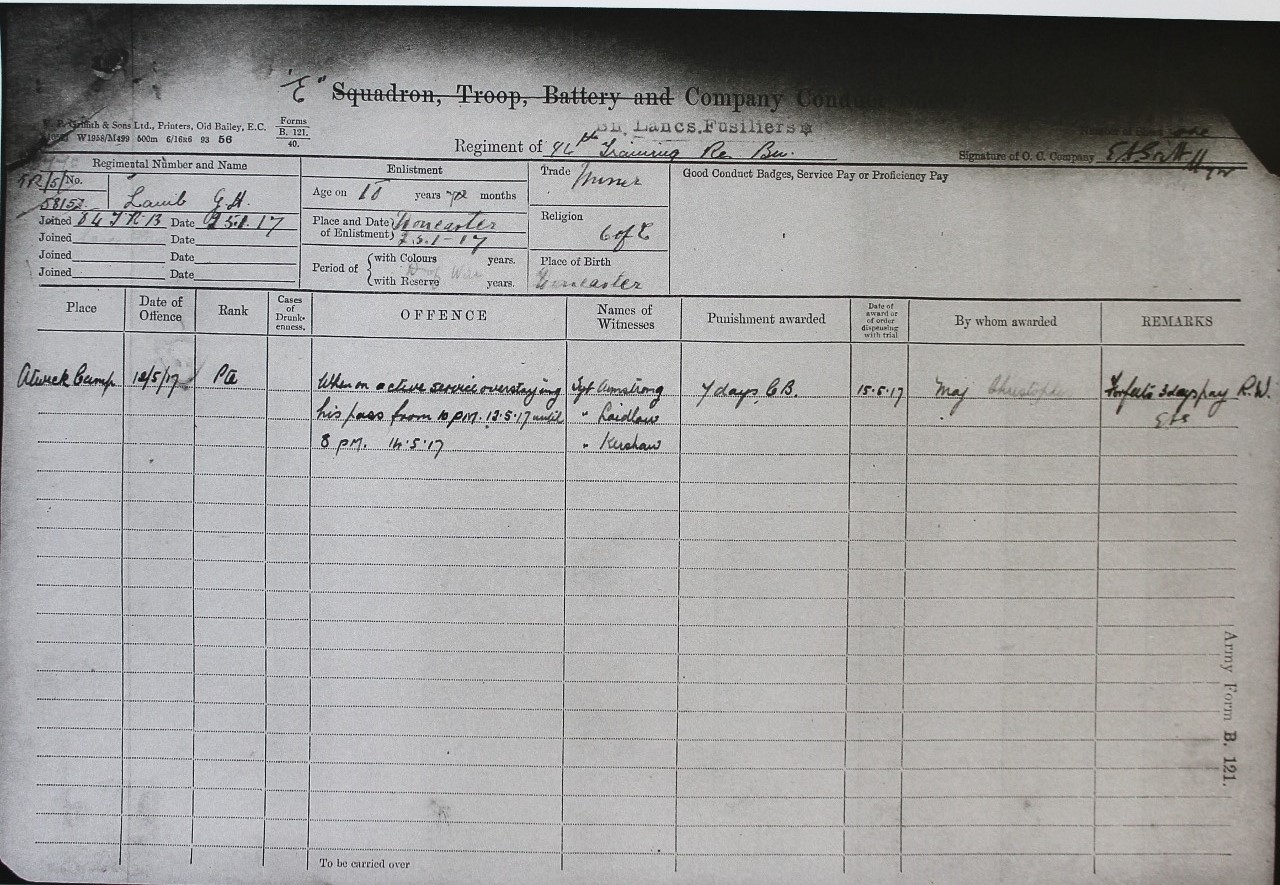 "E" Squadron, Troop, Battery and Company Conduct
W. P. Griffith & Sons Ltd., Printers, Old Bailey, E.C.
W1958/M499 500m 6/16x6 93 56
Forms
B. 121.
40.
Lancs. Fusiliers
Regiment of Training Re. Bn.
Signature of O. C. Company
Regimental Number and Name
TR/5/ No.
58152 Lamb G.H.
Joined 84 T R B Date 25.1.17
Joined Date
Joined Date
Joined Date
Enlistment
Age on 18 years months
Place and Date of Enlistment} Doncaster
25-1-17
Period of {with Colours years.
{with Reserve years.
Trade Miner
Religion
C of E
Place of Birth
Doncaster
Good Conduct Badges, Service Pay or Proficiency Pay
Place
Date of Offence
Rank
Cases of Drunkenness.
OFFENCE
Names of Witnesses
Punishment awarded
Date of award or of order dispensing with trial
By whom awarded
REMARKS
Atwick Camp 12/5/17 Pte When on active service overstaying Sgt Armstrong 7 days C.B. 15.5.17 Maj Christopher Forfeits 3 days pay R.W.
his pass from 10 P.M. 12.5.17 until " Laidlaw
8 P.M. 14.5.17 " Kershaw
To be carried over
Army Form B. 121.